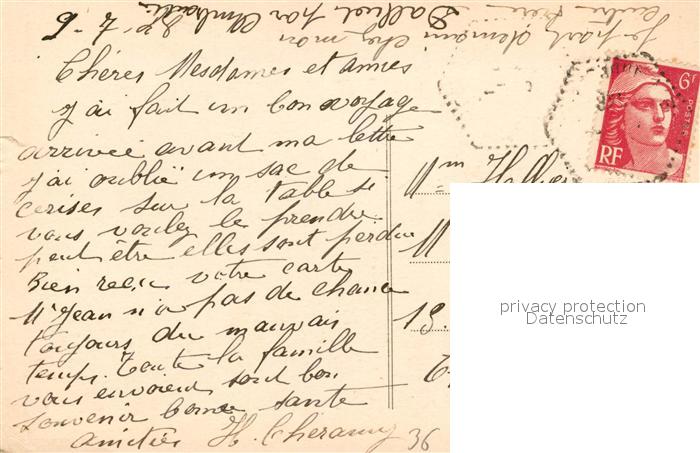 Je pars demain chez mon
Chères Mesdames et amies
j'ai fait un bon voyage
arrivée avant ma lettre
j'ai oublié un sac de
cerises sur la table si
vous voulez le prendre
peut être elles sont perdue
Bien reçu votre carte
Mr Jean n'a pas de chance
toujours du mauvais
temps. Toute la famille
vous envoient sont bon
souvenir bonne santé
amitiés H. Cheramy
36
6F
POSTES
RF
Mme
M
19
privacy protection
Datenschutz